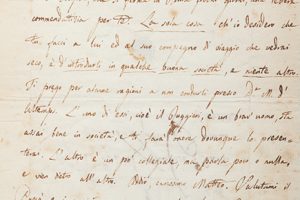 commendatizia per te. La sola cosa ch'io desidero che
tu facci a lui ed al suo compagno di viaggio che vedrai
seco, è d'introdurli in qualche buona società, e niente altro.
Ti prego per alcune ragioni a non condurli presso D.ª M. d'
L'uno di essi, cioè il Ruggieri, è un brav'uomo, sta
assai bene in società, e ti farà onore dovunque lo presen-
terai. L'altro è un po' collegiale, ma parla poco o nulla,
e vien dietro all'altro. Addio, carissimo Matteo. Salutami il